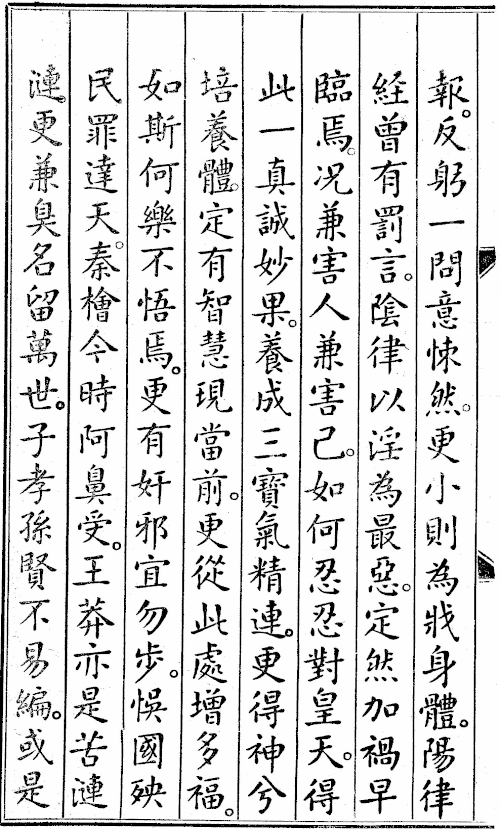 報。反躬一問意悚然。更小則為戕身體。陽律
經曾有罰言。陰律以淫為最惡。定然加禍早
臨焉。况兼害人兼害己。如何忍忍對皇天。得
此一真誠妙果。養成三寶氣精連。更得神兮
培養體。定有智慧現當前。更從此處增多福。
如斯何樂不悟焉。更有奸邪宜勿步。悞國殃
民罪達天。秦檜今時阿鼻受。王莽亦是苦漣
漣更兼臭名留萬世。子孝孫賢不易編。或是